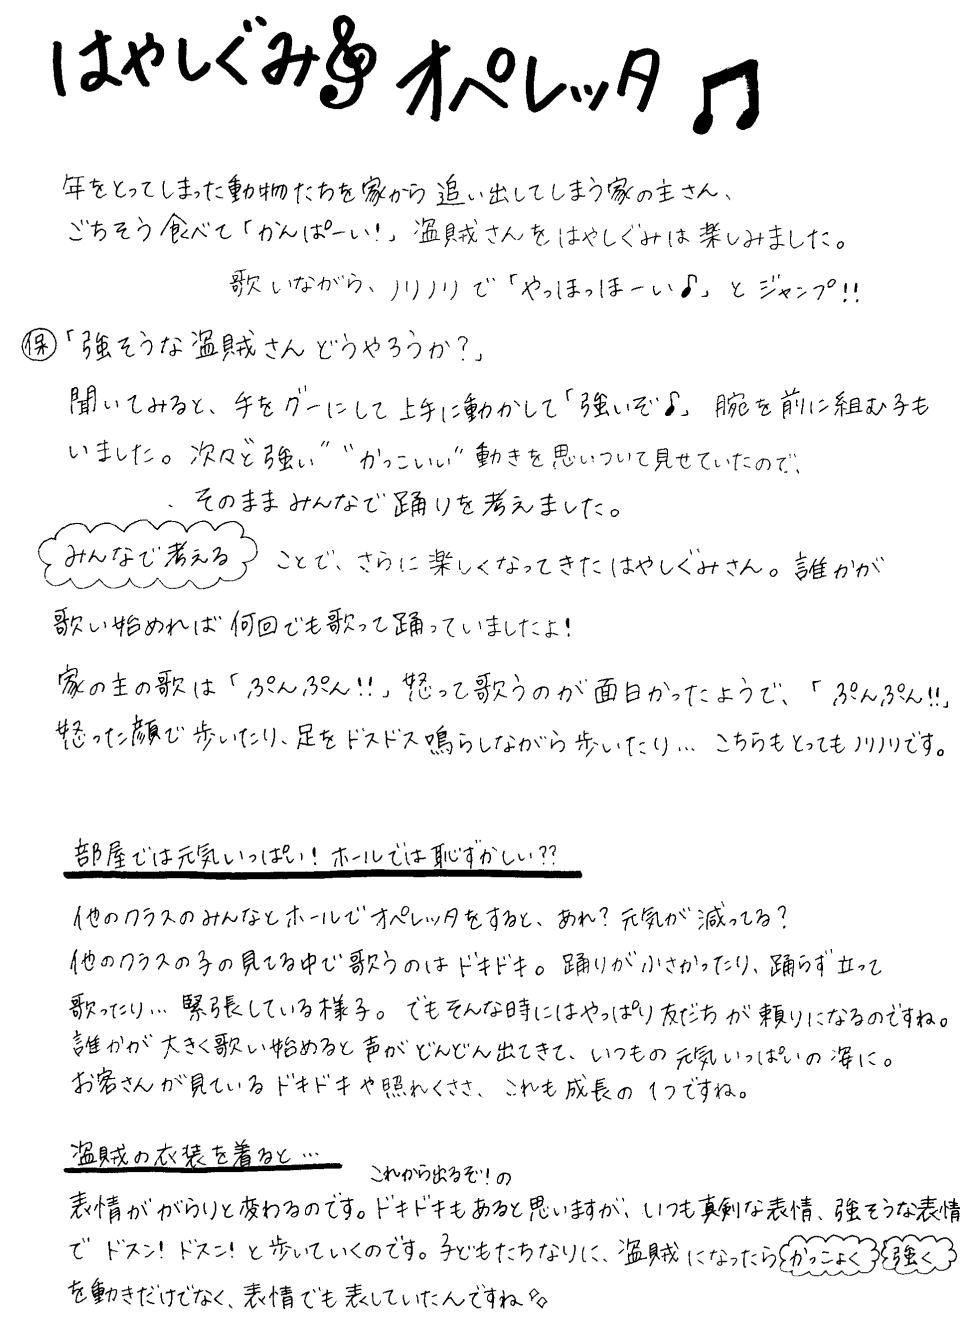 はやしぐみ オペレッタ
年をとってしまった動物たちを家から追い出してしまう家の主さん、
ごちそう食べて「かんぱーい!」盗賊さんをはやしぐみは楽しみました。
歌いながら、ノリノリで「やっほっほーい♪」とジャンプ!!
保「強そうな盗賊さんどうやろうか?」
聞いてみると、手をグーにして上手に動かして「強いぞ♪」腕を前に組む子も
いました。次々と"強い""かっこいい"動きを思いついて見せていたので、
そのままみんなで踊りを考えました。
みんなで考える ことで、さらに楽しくなってきたはやしぐみさん。誰かが
歌い始めれば何回でも歌って踊っていましたよ!
家の主の歌は「ぷんぷん!!」怒って歌うのが面白かったようで、「ぷんぷん!!」
怒った顔で歩いたり、足をドスドス鳴らしながら歩いたり… こちらもとってもノリノリです。
部屋では元気いっぱい!ホールでは恥ずかしい??
他のクラスのみんなとホールでオペレッタをすると、あれ?元気が減ってる?
他のクラスの子の見てる中で歌うのはドキドキ。踊りが小さかったり、踊らず立って
歌ったり… 緊張している様子。でもそんな時にはやっぱり友だちが頼りになるのですね。
誰かが大きく歌い始めると声がどんどん出てきて、いつもの元気いっぱいの姿に。
お客さんが見ているドキドキや照れくささ、これも成長の1つですね。
盗賊の衣装を着ると…
これから出るぞ!の
表情ががらりと変わるのです。ドキドキもあると思いますが、いつも真剣な表情、強そうな表情
でドスン!ドスン!と歩いていくのです。子どもたちなりに、盗賊になったらかっこよく 強く
を動きだけでなく、表情でも表していたんですね